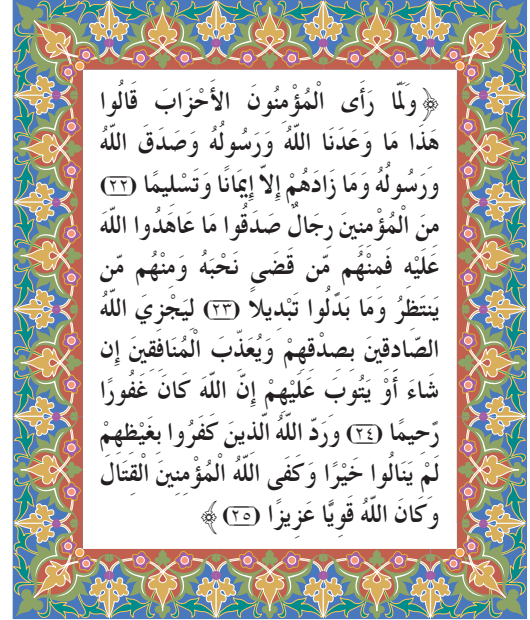 ﴿ وَلَمَّا رَأَى الْمُؤْمِنُونَ الأَحْزَابَ قَالُوا
هَذَا مَا وَعَدَنَا اللَّهُ وَرَسُولُهُ وَصَدَقَ اللَّهُ
وَرَسُولُهُ وَمَا زَادَهُمْ إِلاَّ إِيمَانًا وَتَسْلِيمًا (٢٢)
مِنَ الْمُؤْمِنِينَ رِجَالٌ صَدَقُوا مَا عَاهَدُوا اللَّهَ
عَلَيْهِ فَمِنْهُم مَّن قَضَى نَحْبَهُ وَمِنْهُم مَّن
يَنتَظِرُ وَمَا بَدَّلُوا تَبْدِيلاً (٢٣) لِيَجْزِيَ اللَّهُ
الصَّادِقِينَ بِصِدْقِهِمْ وَيُعَذِّبَ الْمُنَافِقِينَ إِن
شَاءَ أَوْ يَتُوبَ عَلَيْهِمْ إِنَّ اللَّهَ كَانَ غَفُورًا
رَّحِيمًا (٢٤) وَرَدَّ اللَّهُ الَّذِينَ كَفَرُوا بِغَيْظِهِمْ
لَمْ يَنَالُوا خَيْرًا وَكَفَى اللَّهُ الْمُؤْمِنِينَ الْقِتَالَ
وَكَانَ اللَّهُ قَوِيًّا عَزِيزًا (٢٥) ﴾